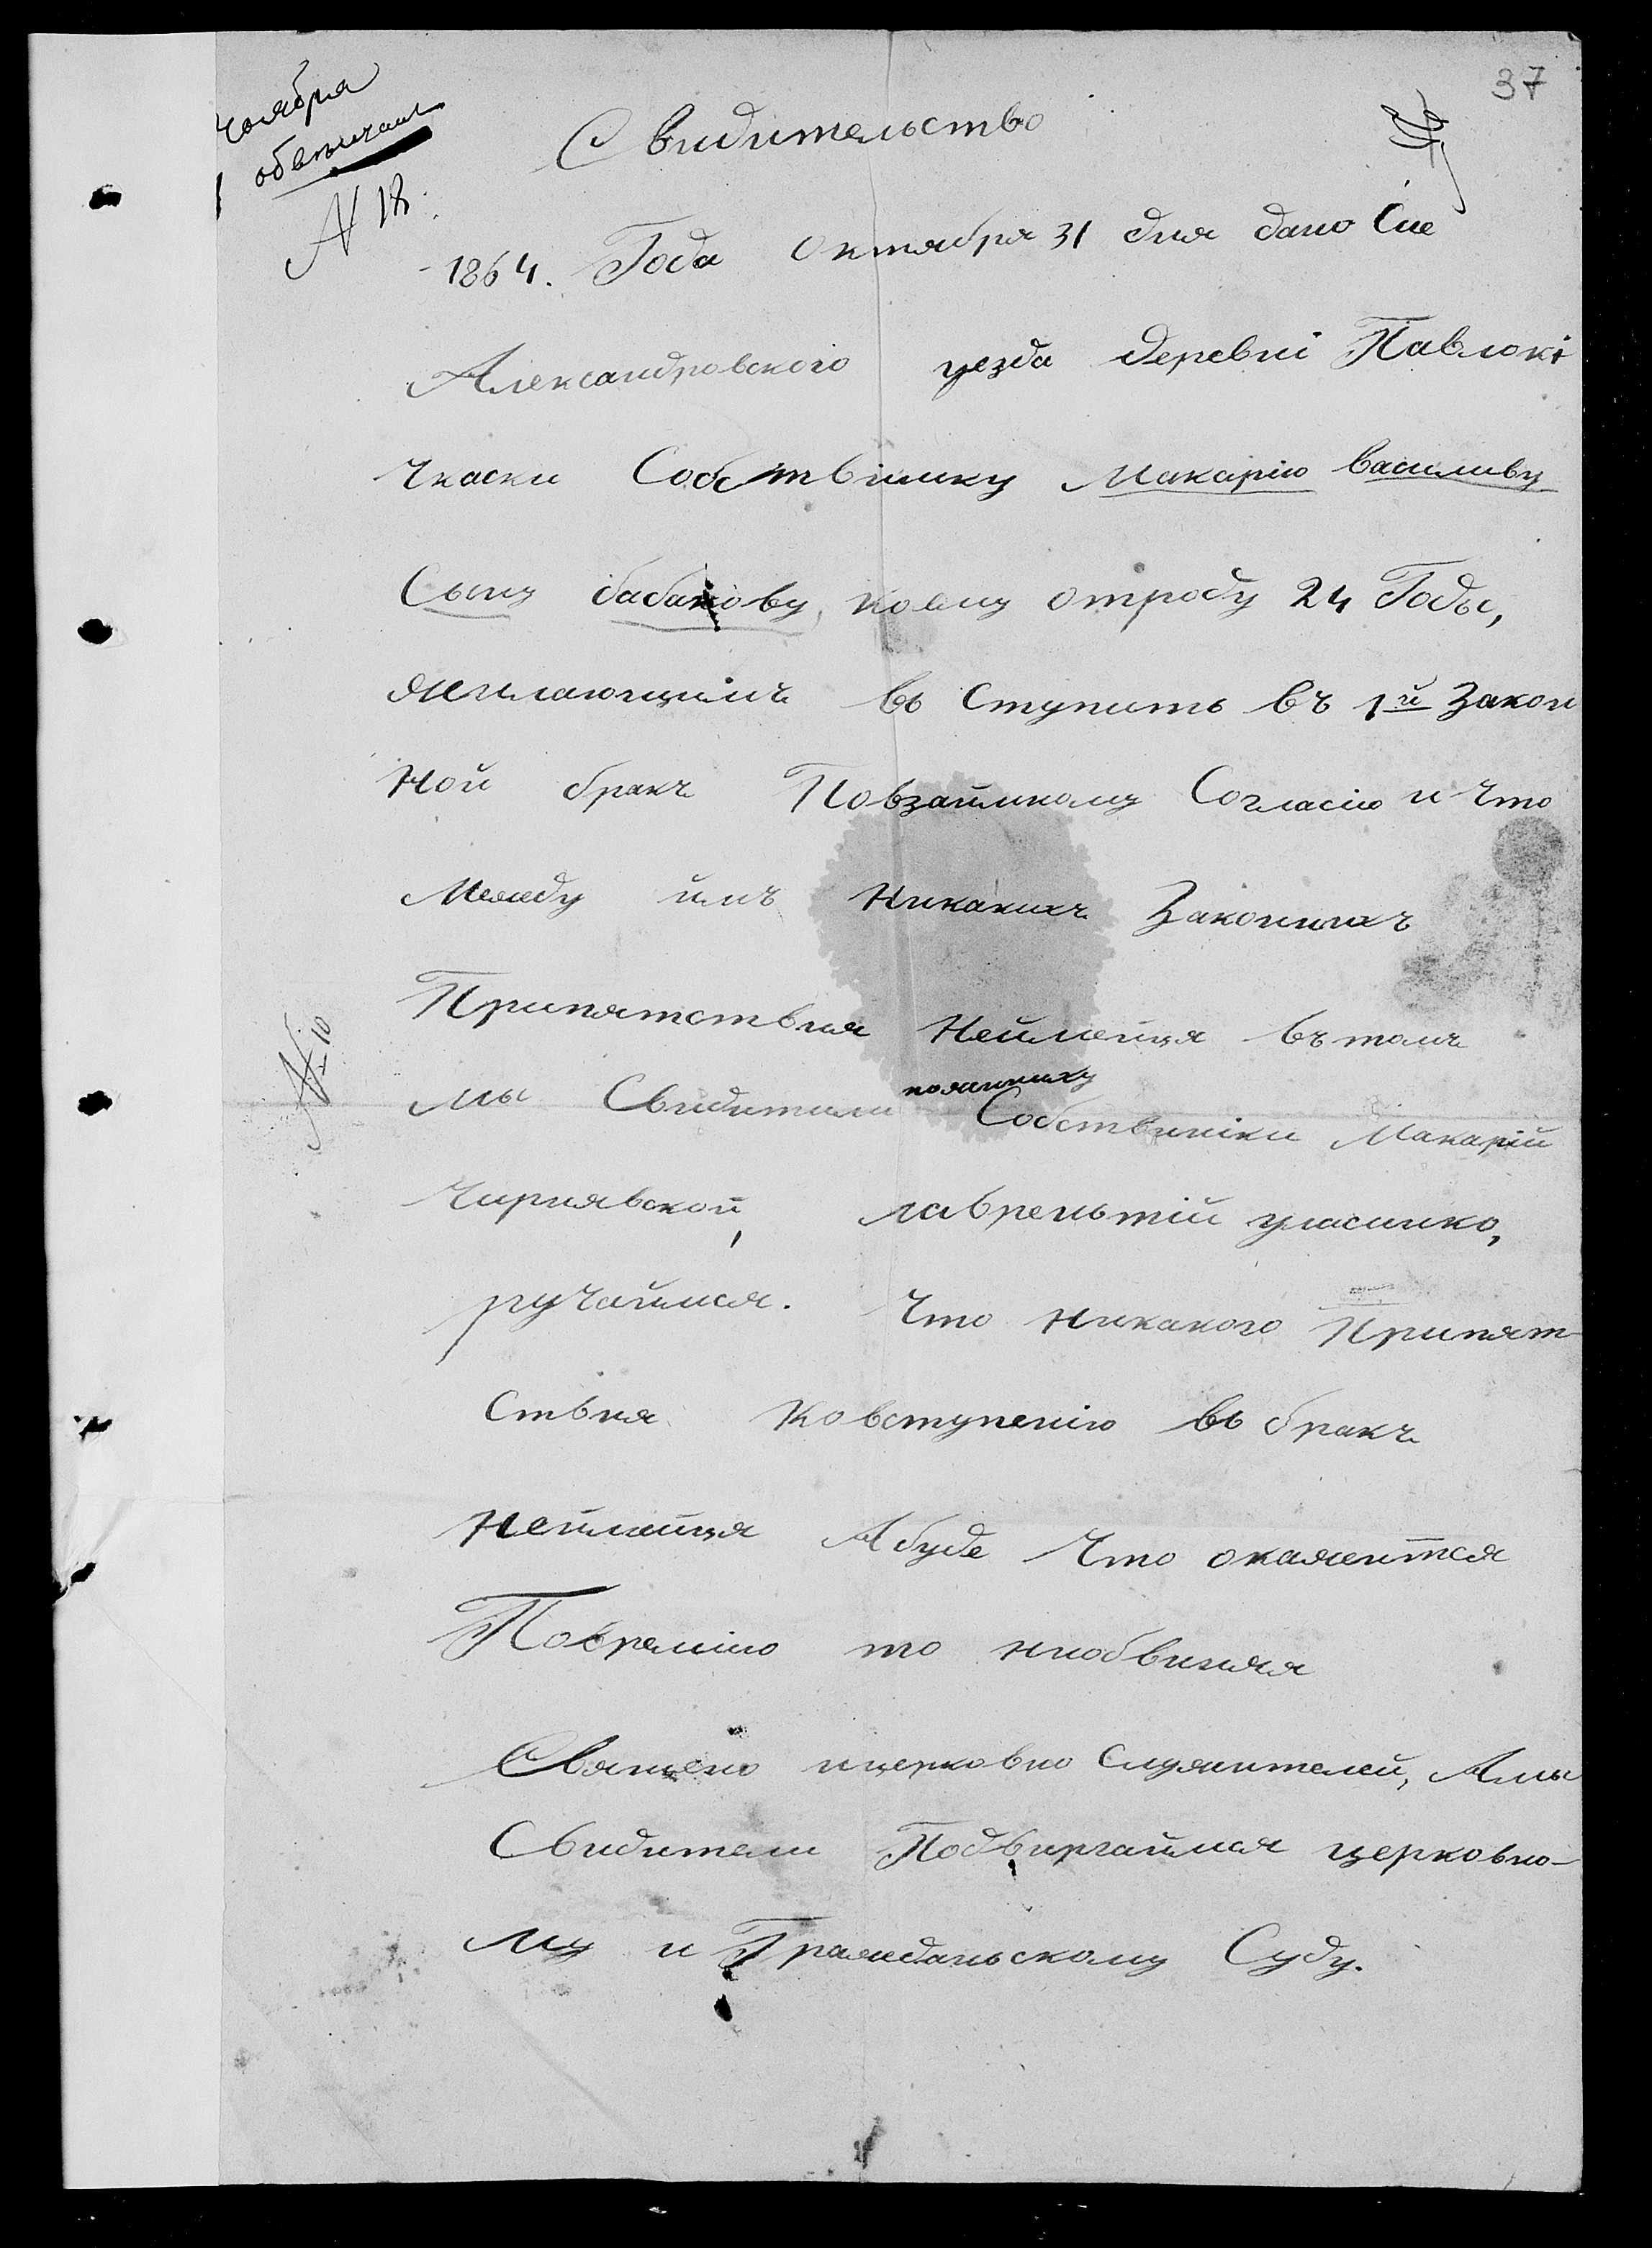 37
ноября
обвенчан
N 18.
Свидительство
1864. Года Октября 31 дня дано Сие
Александровского уезда деревни Павлокі
чкаски Собствінику Макарію василиву
Сыну бабакову, коему отроду 24 Годы,
желающимъ въ Ступить въ 1й Закон
ной бракъ Повзаимному Согласію и что
Между имъ Никакихъ Законныхъ
Припятствия Неймеиця въ томъ
N 10
мы Свидители Собственіки Макарій
Чирнявской, лаврентій
ручаймся. Что никакого Припят
Ствия Ковступенію въ бракъ
Неймеиця А буде Что окажится
Повремъю то необвиняя
Священо ицерковно Служителей, Амы
Свидители Подвиргаймся церковно-
му и Гражданьскому Суду.